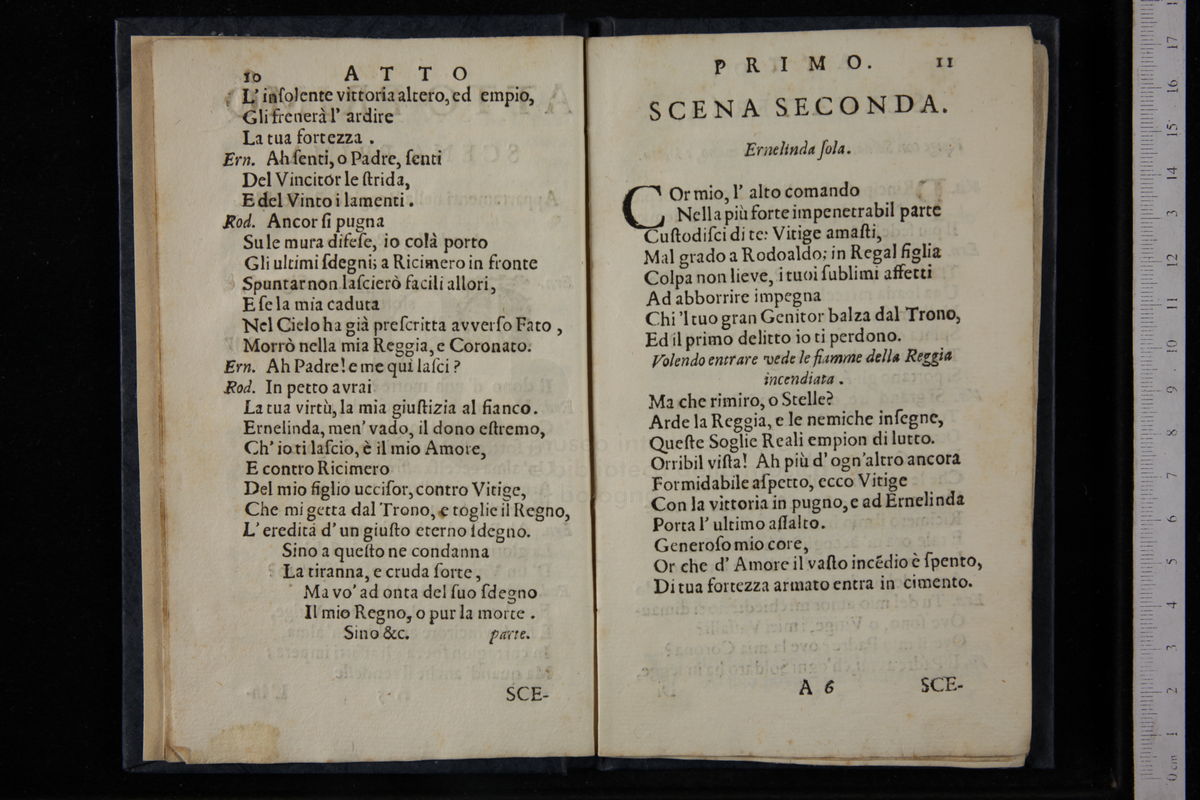 10 ATTO
L' inſolente vittoria altero, ed empio,
Gli frenerà l' ardire
La tua fortezza .
Ern. Ah ſenti, o Padre, ſenti
Del Vincitor le ſtrida,
E del Vinto i lamenti .
Rod. Ancor ſi pugna
Su le mura difeſe, io colà porto
Gli ultimi ſdegni; a Ricimero in fronte
Spuntar non laſcierò facili allori,
E ſe la mia caduta
Nel Cielo ha già preſcritta avverſo Fato ,
Morrò nella mia Reggia, e Coronato.
Ern. Ah Padre! e me qui laſci ?
Rod. In petto avrai
La tua virtù, la mia giuſtizia al fianco.
Ernelinda, men' vado, il dono eſtremo,
Ch' io ti laſcio, è il mio Amore,
E contro Ricimero
Del mio figlio ucciſor, contro Vitige,
Che mi getta dal Trono, e toglie il Regno,
L' eredità d' un giuſto eterno ſdegno.
Sino a queſto ne condanna
La tiranna, e cruda ſorte ,
Ma vo' ad onta del ſuo ſdegno
Il mio Regno, o pur la morte .
Sino &c. parte.
SCE-
PRIMO. 11
SCENA SECONDA.
Ernelinda ſola.
COr mio, l' alto comando
Nella più forte impenetrabil parte
Cuſtodiſci di te: Vitige amaſti,
Mal grado a Rodoaldo; in Regal figlia
Colpa non lieve, i tuoi ſublimi affetti
Ad abborrire impegna
Chi 'l tuo gran Genitor balza dal Trono,
Ed il primo delitto io ti perdono.
Volendo entrare vede le fiamme della Reggia
incendiata .
Ma che rimiro, o Stelle?
Arde la Reggia, e le nemiche inſegne,
Queſte Soglie Reali empion di lutto.
Orribil viſta! Ah più d' ogn'altro ancora
Formidabile aſpetto, ecco Vitige
Con la vittoria in pugno, e ad Ernelinda
Porta l' ultimo aſſalto.
Generoſo mio core,
Or che d' Amore il vaſto incédio è ſpento,
Di tua fortezza armato entra in cimento.
A 6 SCE-